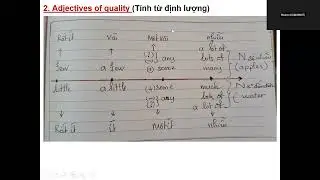 2. Adjectives of quality (Tính từ định lượng)
Rất ít Vài Một vài nhiều
(?) any a lot of
few a few (+) some lots of many N số nhiều (apples)
little a little (+) some much
any lots of a lot of water
Rất ít ít Một ít nhiều